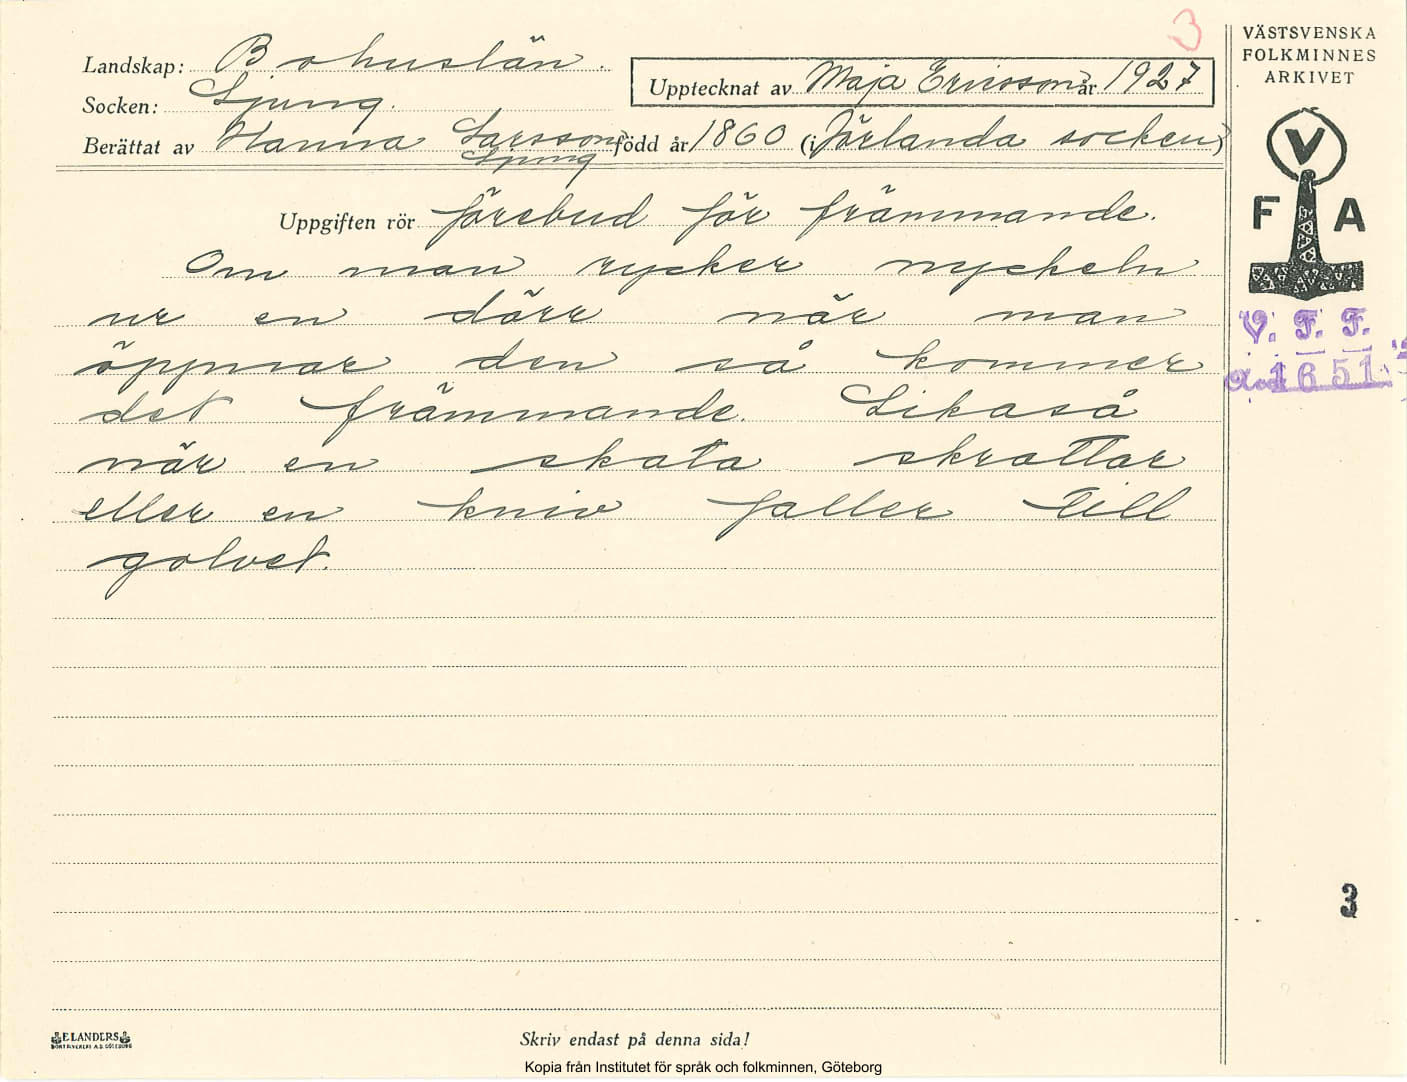 3
Landskap: Bohuslän.
Socken: Ljung.
Upptecknat av Maja Ericsson år 1927
Berättat av Hanna Larsson född år 1860 (i Jörlanda socken)
Ljung
Uppgiften rör förebud för främmande.
Om man rycker nyckeln
ur en dörr när man
öppnar den så kommer
det främmande. Likaså
när en skata skrattar
eller en kniv faller till
golvet.
VÄSTSVENSKA
FOLKMINNES
ARKIVET
V
F A
V. F. F.
1651
3
ELANDERS
Skriv endast på denna sida!
Kopia från Institutet för språk och folkminnen, Göteborg